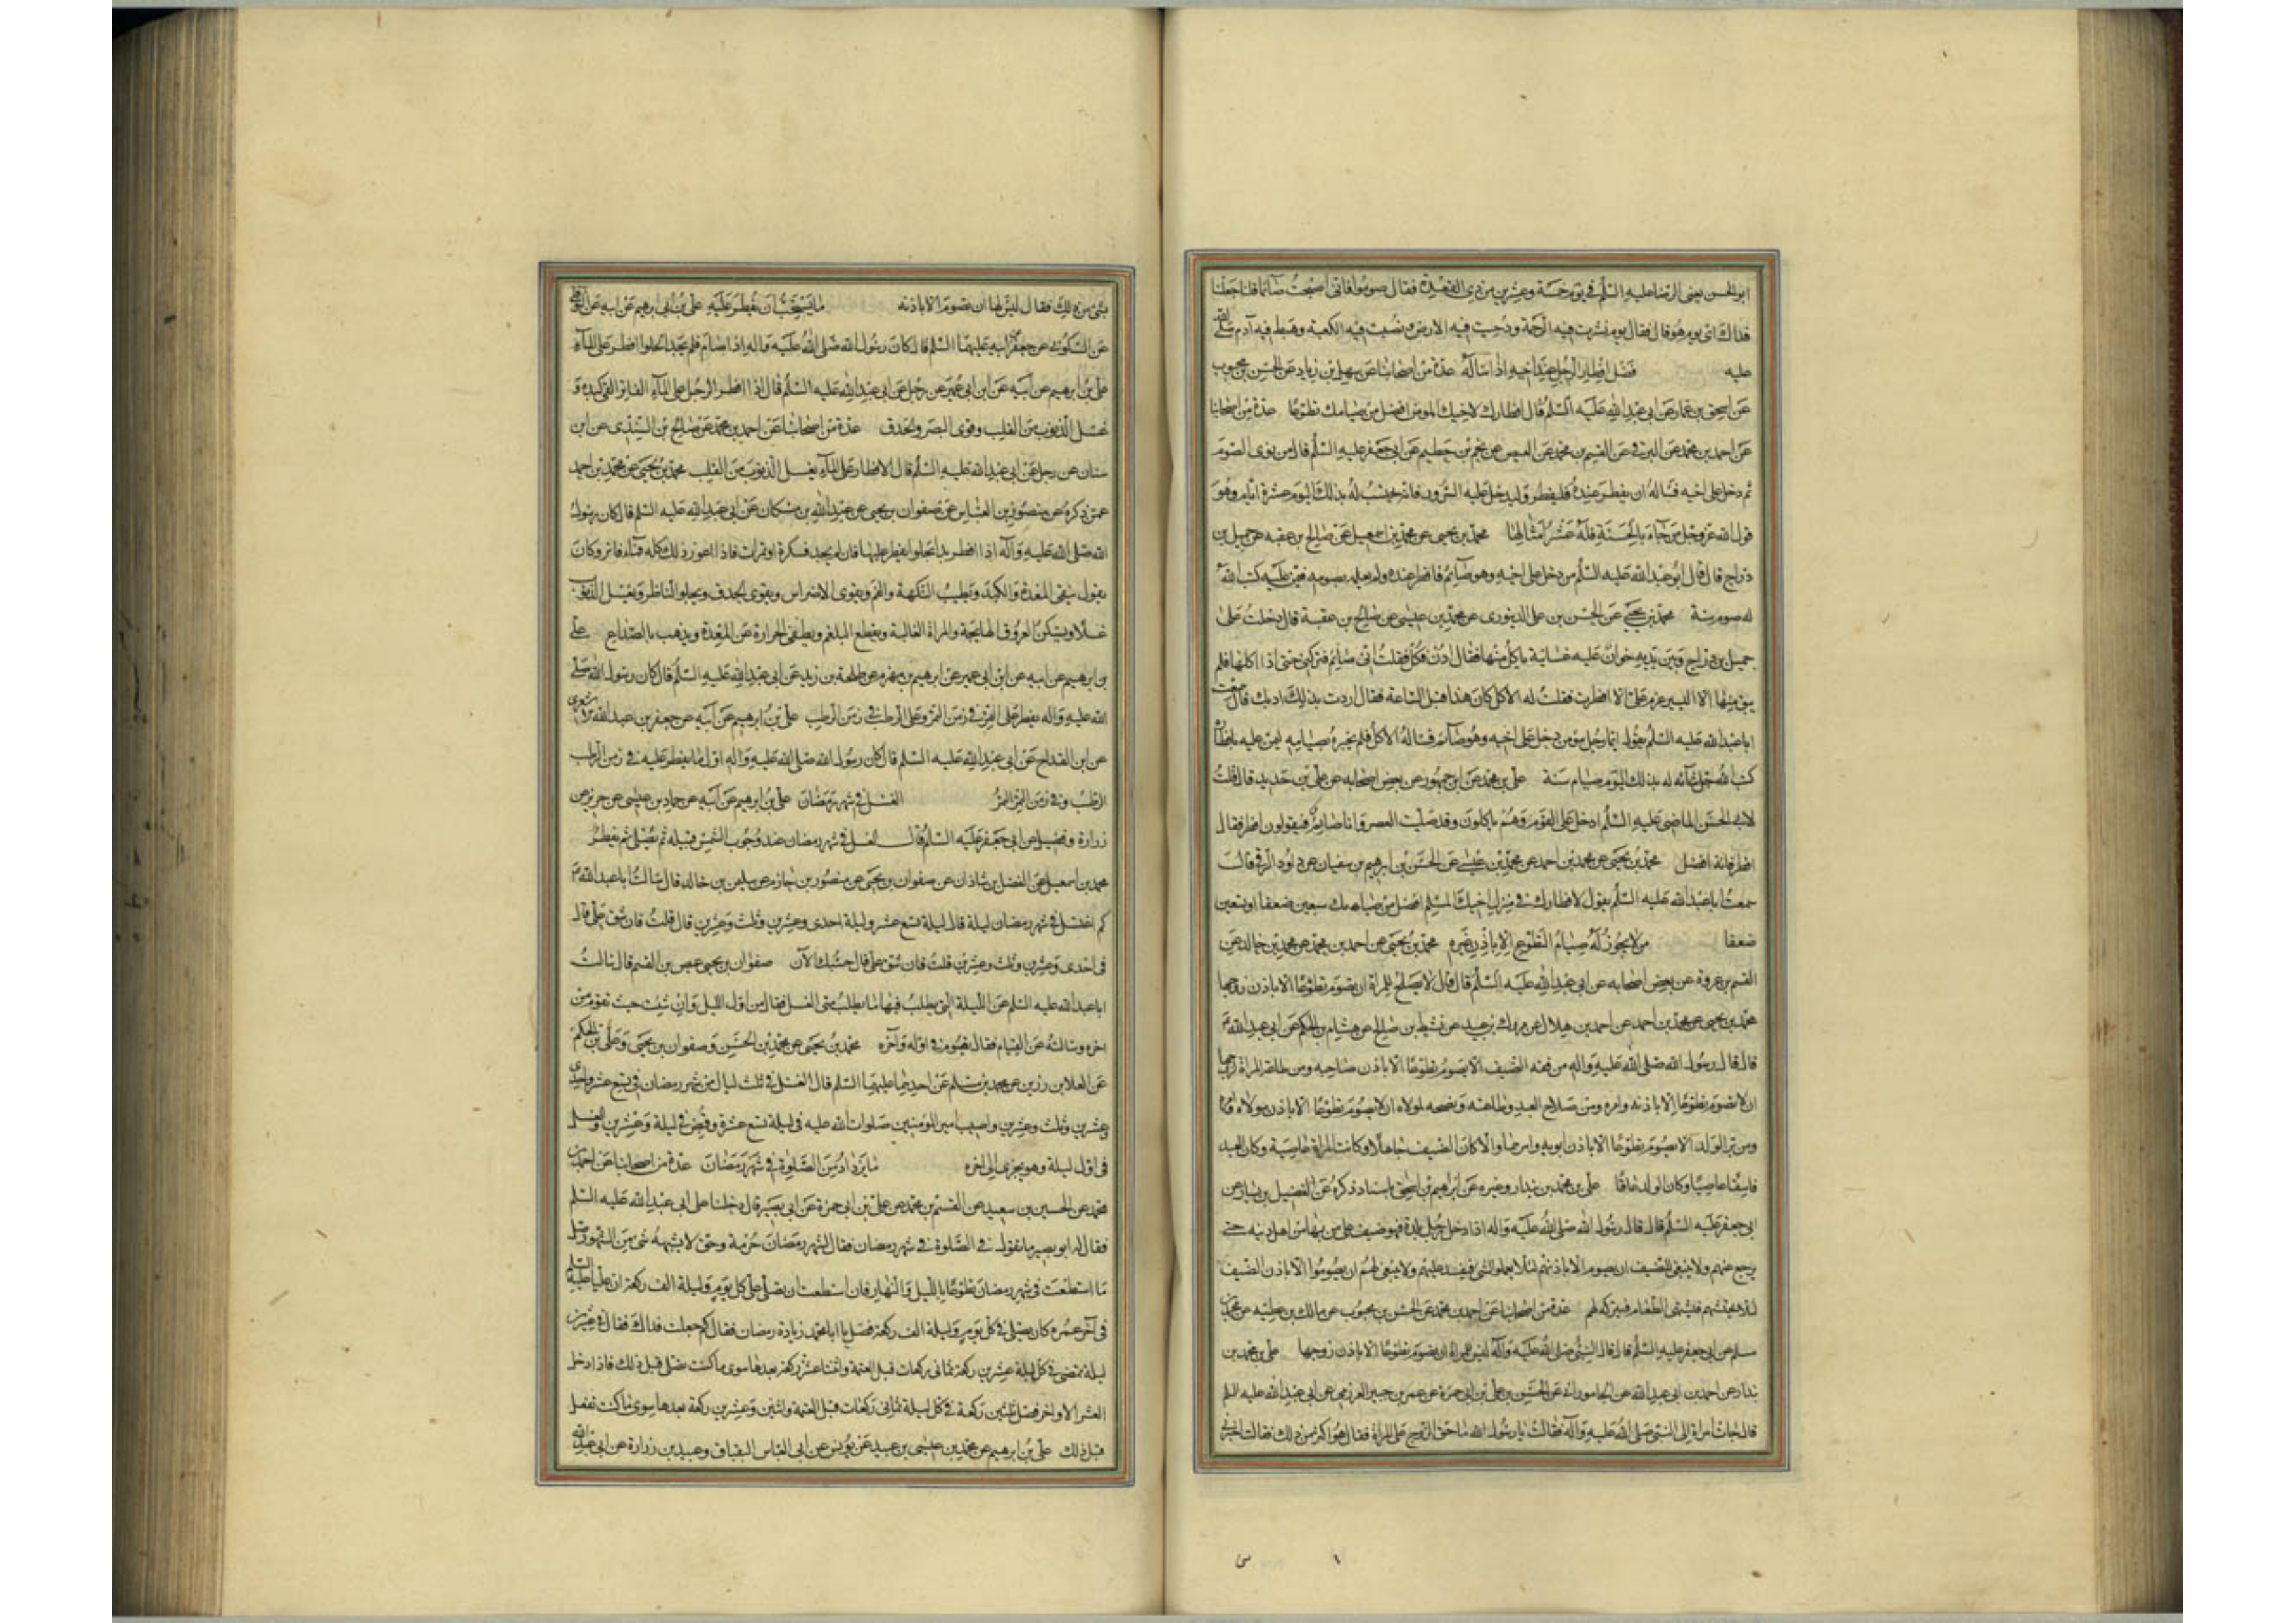 ابو الحسن يعنى الرضا عليه السلم فى يوم خمسة وعشرين من ذى القعدة فقال صوموا فانى اصبحت صائما قلنا جعلنا
فداك اى يوم هو قال فقال يوم نشرت فيه الرحمة ودحيت فيه الارض ونصبت فيه الكعبة وهبط فيه آدم صلى الله
عليه فضل افطار الرجل عند اخيه اذا ساله عدة من اصحابنا عن سهل بن زياد عن الحسن بن محبوب
عن اسحق بن عمار عن ابى عبد الله عليه السلم قال افطارك لاخيك المومن افضل من صيامك تطوعا عدة من اصحابنا
عن احمد بن محمد عن البرقى عن القسم بن محمد عن العيص عن نجم بن حطيم عن ابى جعفر عليه السلم قال من نوى الصوم
ثم دخل على اخيه فساله ان يفطر عنده فليفطر وليدخل عليه السرور فانه يحتسب له بذلك اليوم عشرة ايام وهو
قول الله عز وجل من جاء بالحسنة فله عشر امثالها محمد بن يحيى عن محمد بن اسمعيل عن صالح بن عقبه عن جميل بن
دراج قال قال ابو عبد الله عليه السلم من دخل على اخيه وهو صائم فافطر عنده ولم يعلمه بصومه فيمن عليه كتب الله
له صوم سنة محمد بن يحيى عن الحسن بن على الدينورى عن محمد بن عيسى عن صالح بن عقبة قال دخلت على
جميل بن دراج وبين يديه خوان عليه غسانية ياكل منها فقال ادن فكل فقلت انى صائم فتركنى حتى اذا اكلها فلم
يبق منها الا اليسير عزم على الا افطرت فقلت له الا كان هذا قبل الساعة فقال اردت بذلك ادبك ثم قال سمعت
ابا عبد الله عليه السلم يقول ايما رجل مومن دخل على اخيه وهو صائم فساله الاكل فلم يخبره بصيامه ليمن عليه بافطاره
كتب الله جل ثنائه له بذلك اليوم صيام سنة على بن محمد عن ابن جمهور عن بعض اصحابه عن على بن حديد قال قلت
لابى الحسن الماضى عليه السلم ادخل على القوم وهم ياكلون وقد صليت العصر وانا صائم فيقولون افطر فقال
افطر فانه افضل محمد بن يحيى عن محمد بن احمد عن محمد بن عيسى عن الحسن بن ابرهيم بن سفيان عن داود الرقى قال
سمعت ابا عبد الله عليه السلم يقول لافطارك فى منزل اخيك المسلم افضل من صيامك سبعين ضعفا او تسعين
ضعفا من لا يجوز له صيام التطوع الا باذن غيره محمد بن يحيى عن احمد بن محمد عن محمد بن خالد عن
القسم بن عروة عن بعض اصحابه عن ابى عبد الله عليه السلم قال قال لا يصلح للمراة ان تصوم تطوعا الا باذن زوجها
محمد بن يحيى عن محمد بن احمد عن احمد بن هلال عن مروك بن عبيد عن نشيط بن صالح عن هشام بن الحكم عن ابى عبد الله ع
قال قال رسول الله صلى الله عليه واله من فقه الضيف الا يصوم تطوعا الا باذن صاحبه ومن طاعة المراة لزوجها
ان لا تصوم تطوعا الا باذنه وامره ومن صلاح العبد وطاعته ونصحه لمولاه ان لا يصوم تطوعا الا باذن مولاه
ومن بر الولد الا يصوم تطوعا الا باذن ابويه وامرهما والا كان الضيف جاهلا وكانت المراة عاصية وكان العبد
فاسقا عاصيا وكان الولد عاقا على بن محمد بن بندار وغيره عن ابرهيم بن اسحق باسناد ذكره عن الفضيل بن يسار عن
ابى جعفر عليه السلم قال قال رسول الله صلى الله عليه واله اذا دخل رجل بلدة فهو ضيف على من بها من اهل دينه حتى
يرجع عنهم ولا ينبغى للضيف ان يصوم الا باذنهم لئلا يعملوا الشى فيفسد عليهم ولا ينبغى لهم ان يصوموا الا باذن الضيف
لئلا يحتشمهم فيشتهى الطعام فيتركه لهم عدة من اصحابنا عن احمد بن محمد عن الحسن بن محبوب عن مالك بن عطيه عن محمد بن
مسلم عن ابى جعفر عليه السلم قال قال النبى صلى الله عليه وآله ليس للمراة ان تصوم تطوعا الا باذن زوجها على بن محمد بن
بندار عن احمد بن ابى عبد الله عن الجامورانى عن الحسن بن على بن ابى حمزة عن عمرو بن جبير العرزمى عن ابى عبد الله عليه السلم
قال جاءت امراة الى النبى صلى الله عليه وآله فقالت يا رسول الله ما حق الزوج على المراة فقال هو اكثر من ذلك فقالت اخبرنى
بشئ من ذلك فقال ليس لها ان تصوم الا باذنه ما يستحب ان يفطر عليه على بن ابرهيم عن ابيه عن النوفلى
عن السكونى عن جعفر عن ابيه عليهما السلم قال كان رسول الله صلى الله عليه واله اذا صام فلم يجد الحلوا افطر على الماء
على بن ابرهيم عن ابيه عن ابن ابى عمير عن رجل عن ابى عبد الله عليه السلم قال اذا افطر الرجل على الماء الفاتر انقى كبده و
غسل الذنوب من القلب وقوى البصر والحدق عدة من اصحابنا عن احمد بن محمد عن صالح بن السندى عن ابن
سنان عن رجل عن ابى عبد الله عليه السلم قال الافطار على الماء يغسل الذنوب من القلب محمد بن يحيى عن محمد بن احمد
عمن ذكره عن منصور بن العباس عن صفوان بن يحيى عن عبد الله بن مسكان عن ابى عبد الله عليه السلم قال كان رسول
الله صلى الله عليه وآله اذا افطر بدا بحلوا يفطر عليها فان لم يجد فسكرة او تمرات فاذا اعوز ذلك كله فماء فاتر وكان
يقول ينقى المعدة والكبد ويطيب النكهة والفم ويقوى الاضراس ويقوى الحدق ويجلوا الناظر ويغسل الذنوب
غسلا ويسكن العروق الهايجة والمرة الغالبة ويقطع البلغم ويطفى الحرارة عن المعدة ويذهب بالصداع على
بن ابرهيم عن ابيه عن ابن ابى عمير عن ابرهيم بن مهزم عن طلحة بن زيد عن ابى عبد الله عليه السلم قال كان رسول الله صلى
الله عليه واله يفطر على التمر فى زمن التمر وعلى الرطب فى زمن الرطب على بن ابرهيم عن ابيه عن جعفر بن عبد الله الاشعرى
عن ابن القداح عن ابى عبد الله عليه السلم قال كان رسول الله صلى الله عليه واله اول ما يفطر عليه فى زمن الرطب
الرطب وفى زمن التمر التمر الغسل فى شهر رمضان على بن ابرهيم عن ابيه عن حماد بن عيسى عن حريز عن
زرارة وفضيل عن ابى جعفر عليه السلم قال الغسل فى شهر رمضان عند وجوب الشمس قبيله ثم يصلى ثم يفطر
محمد بن اسمعيل عن الفضل بن شاذان عن صفوان بن يحيى عن منصور بن حازم عن سليمن بن خالد قال سالت ابا عبد الله ع
كم اغتسل فى شهر رمضان ليلة قال ليلة تسع عشر وليلة احدى وعشرين وثلث وعشرين قال قلت فان شق على قال
فى احدى وعشرين وثلث وعشرين قلت فان شق على قال حسبك الآن صفوان بن يحيى عن عيص بن القسم قال سالت
ابا عبد الله عليه السلم عن الليلة التى يطلب فيها ما يطلب متى الغسل فقال من اول الليل وان شئت حيث تقوم من
اخره وسالته عن القيام فقال تقوم فى اوله وآخره محمد بن يحيى عن محمد بن الحسين وصفوان بن يحيى وعلى بن الحكم
عن العلا بن رزين عن محمد بن مسلم عن احدهما عليهما السلم قال الغسل فى ثلث ليال من شهر رمضان فى تسع عشر واحدى
وعشرين وثلث وعشرين واصيب امير المؤمنين صلوات الله عليه فى ليلة تسع عشرة وقبض فى ليلة وعشرين والغسل
فى اول ليلة وهو يجزى الى اخره ما يزداد من الصلوة فى شهر رمضان عدة من اصحابنا عن احمد بن
محمد عن الحسين بن سعيد عن القسم بن محمد عن على بن ابى حمزة عن ابى بصير قال دخلنا على ابى عبد الله عليه السلم
فقال له ابو بصير ما تقول فى الصلوة فى شهر رمضان فقال لشهر رمضان حرمة وحق لا يشبهه شى من الشهور صل
ما استطعت فى شهر رمضان تطوعا بالليل والنهار فان استطعت ان تصلى على كل يوم وليلة الف ركعة ان عليا عليه السلم
فى آخر عمره كان يصلى فى كل يوم وليلة الف ركعة فصل يا ابا محمد زيادة رمضان فقال كم جعلت فداك فقال فى عشرين
ليلة تمضى فى كل ليلة عشرين ركعة ثمانى ركعات قبل العتمة واثنتا عشر ركعة بعدها سوى ما كنت تصلى قبل ذلك فاذا دخل
العشر الاواخر فصل ثلثين ركعة فى كل ليلة ثمانى ركعات قبل العتمة واثنين وعشرين ركعة بعدها سوى ما كنت تفعل
قبل ذلك على بن ابرهيم عن محمد بن عيسى بن عبيد عن يونس عن ابى العباس البقباق وعبيد بن زرارة عن ابى عبد الله